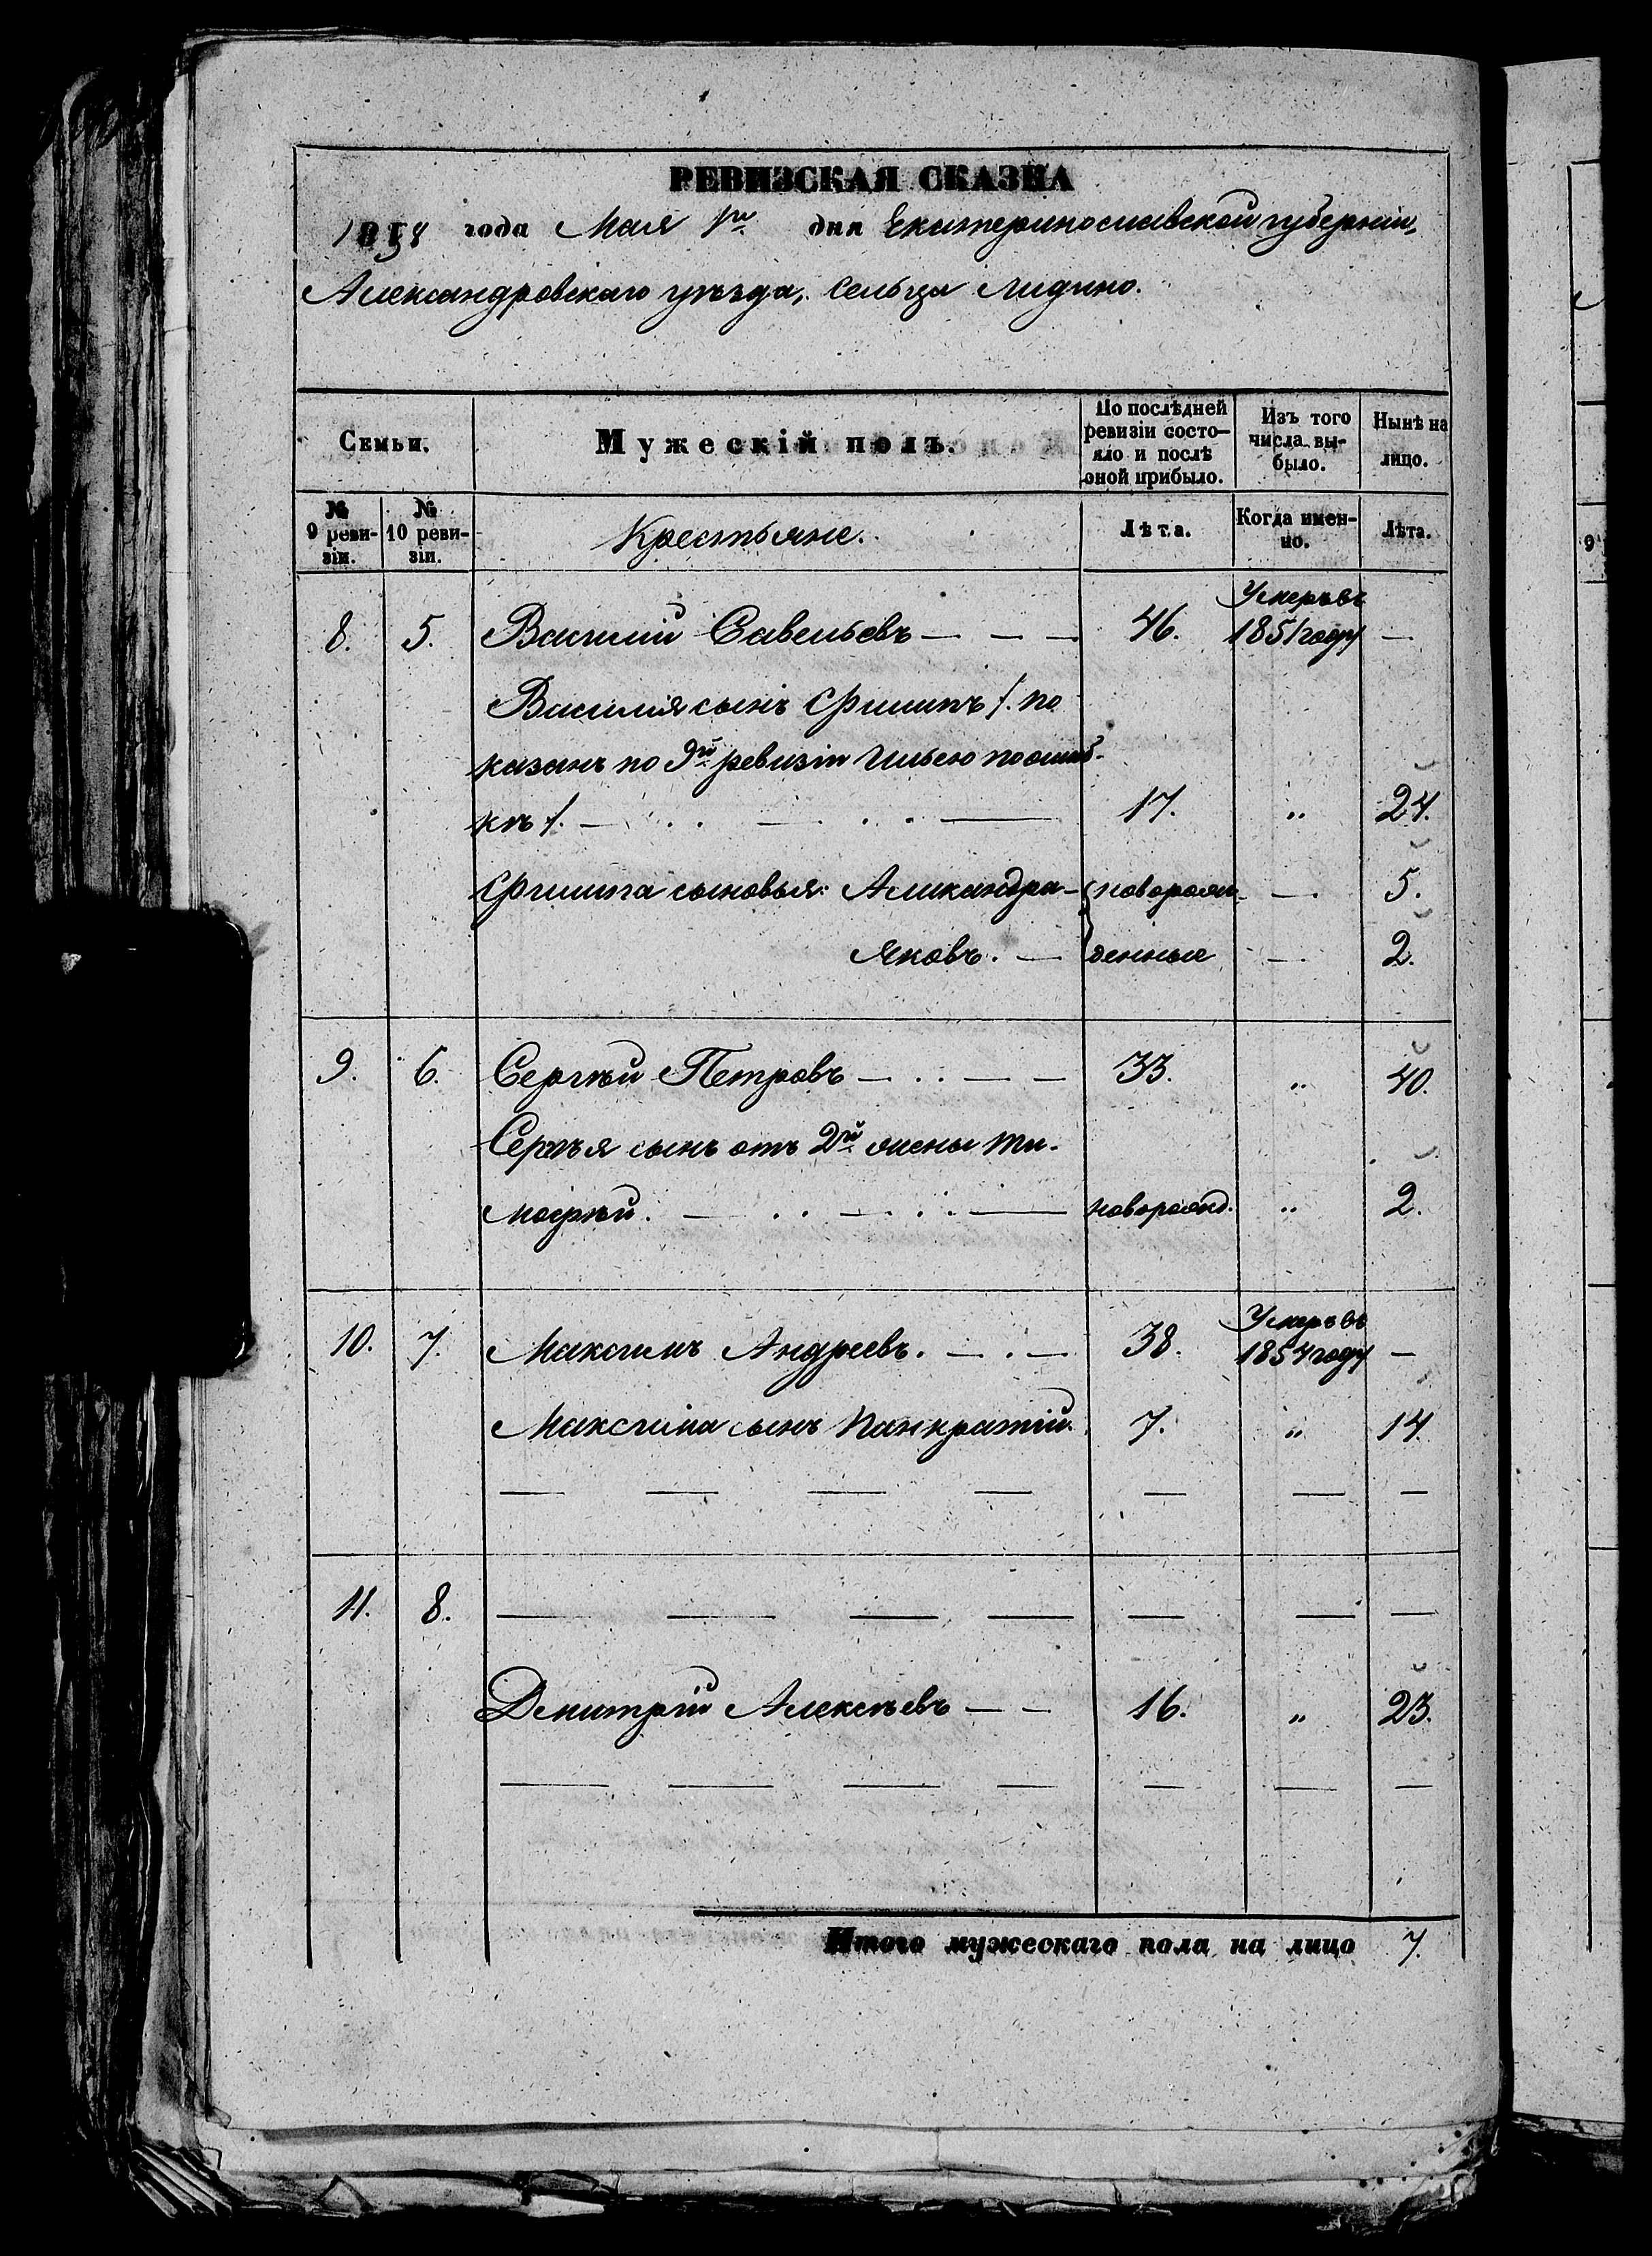 РЕВИЗСКАЯ СКАЗКА
1858 года Мая 1го дня Екатеринославской губерніи,
Александровскаго уѣзда, сельца Лидино.
Семьи. Мужескій полъ. По послѣдней ревизіи состояло и послѣ оной прибыло. Изъ того числа выбыло. Нынѣ на лицо.
№ 9 ревизіи. № 10 ревизіи. Крестьяне. Лѣта. Когда именно. Лѣта.
8. 5. Василій Савельевъ — — — 46. Умеръ въ 1851 году —
Василія сынъ Филипъ /. по
казанъ по 9й ревизіи Ильею по ошиб-
кѣ /. — 17. " 24.
Филипа сыновья: Александра — новорож — 5.
Яковъ. — денные — 2.
9. 6. Сергѣй Петровъ — 33. " 40.
Сергѣя сынъ отъ 2й жены Ти-
мофѣй. — новорожд. " 2.
10. 7. Максимъ Андреевъ. — 38. Умеръ въ 1854 году —
Максима сынъ Панкратій. 7. " 14.
— — — — — — —
11. 8. — — — — — — —
Дмитрій Алексѣевъ — — 16. " 23.
— — — — — — —
Итого мужескаго пола на лицо 7.
9